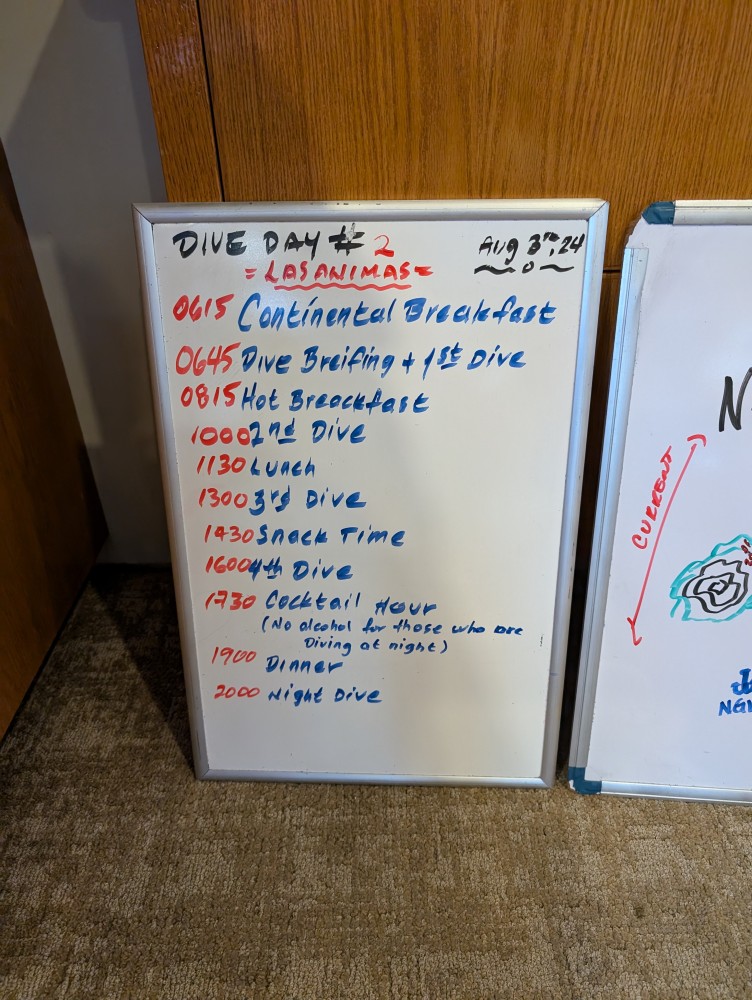 DIVE DAY # 2
Aug 3rd, 24
= LAS ANIMAS =
0615 Continental Breakfast
0645 Dive Breifing + 1st Dive
0815 Hot Breackfast
1000 2nd Dive
1130 Lunch
1300 3rd Dive
1430 Snack Time
1600 4th Dive
1730 Cocktail Hour
(No alcohol for those who are
Diving at night)
1900 Dinner
2000 Night Dive
CURRENT